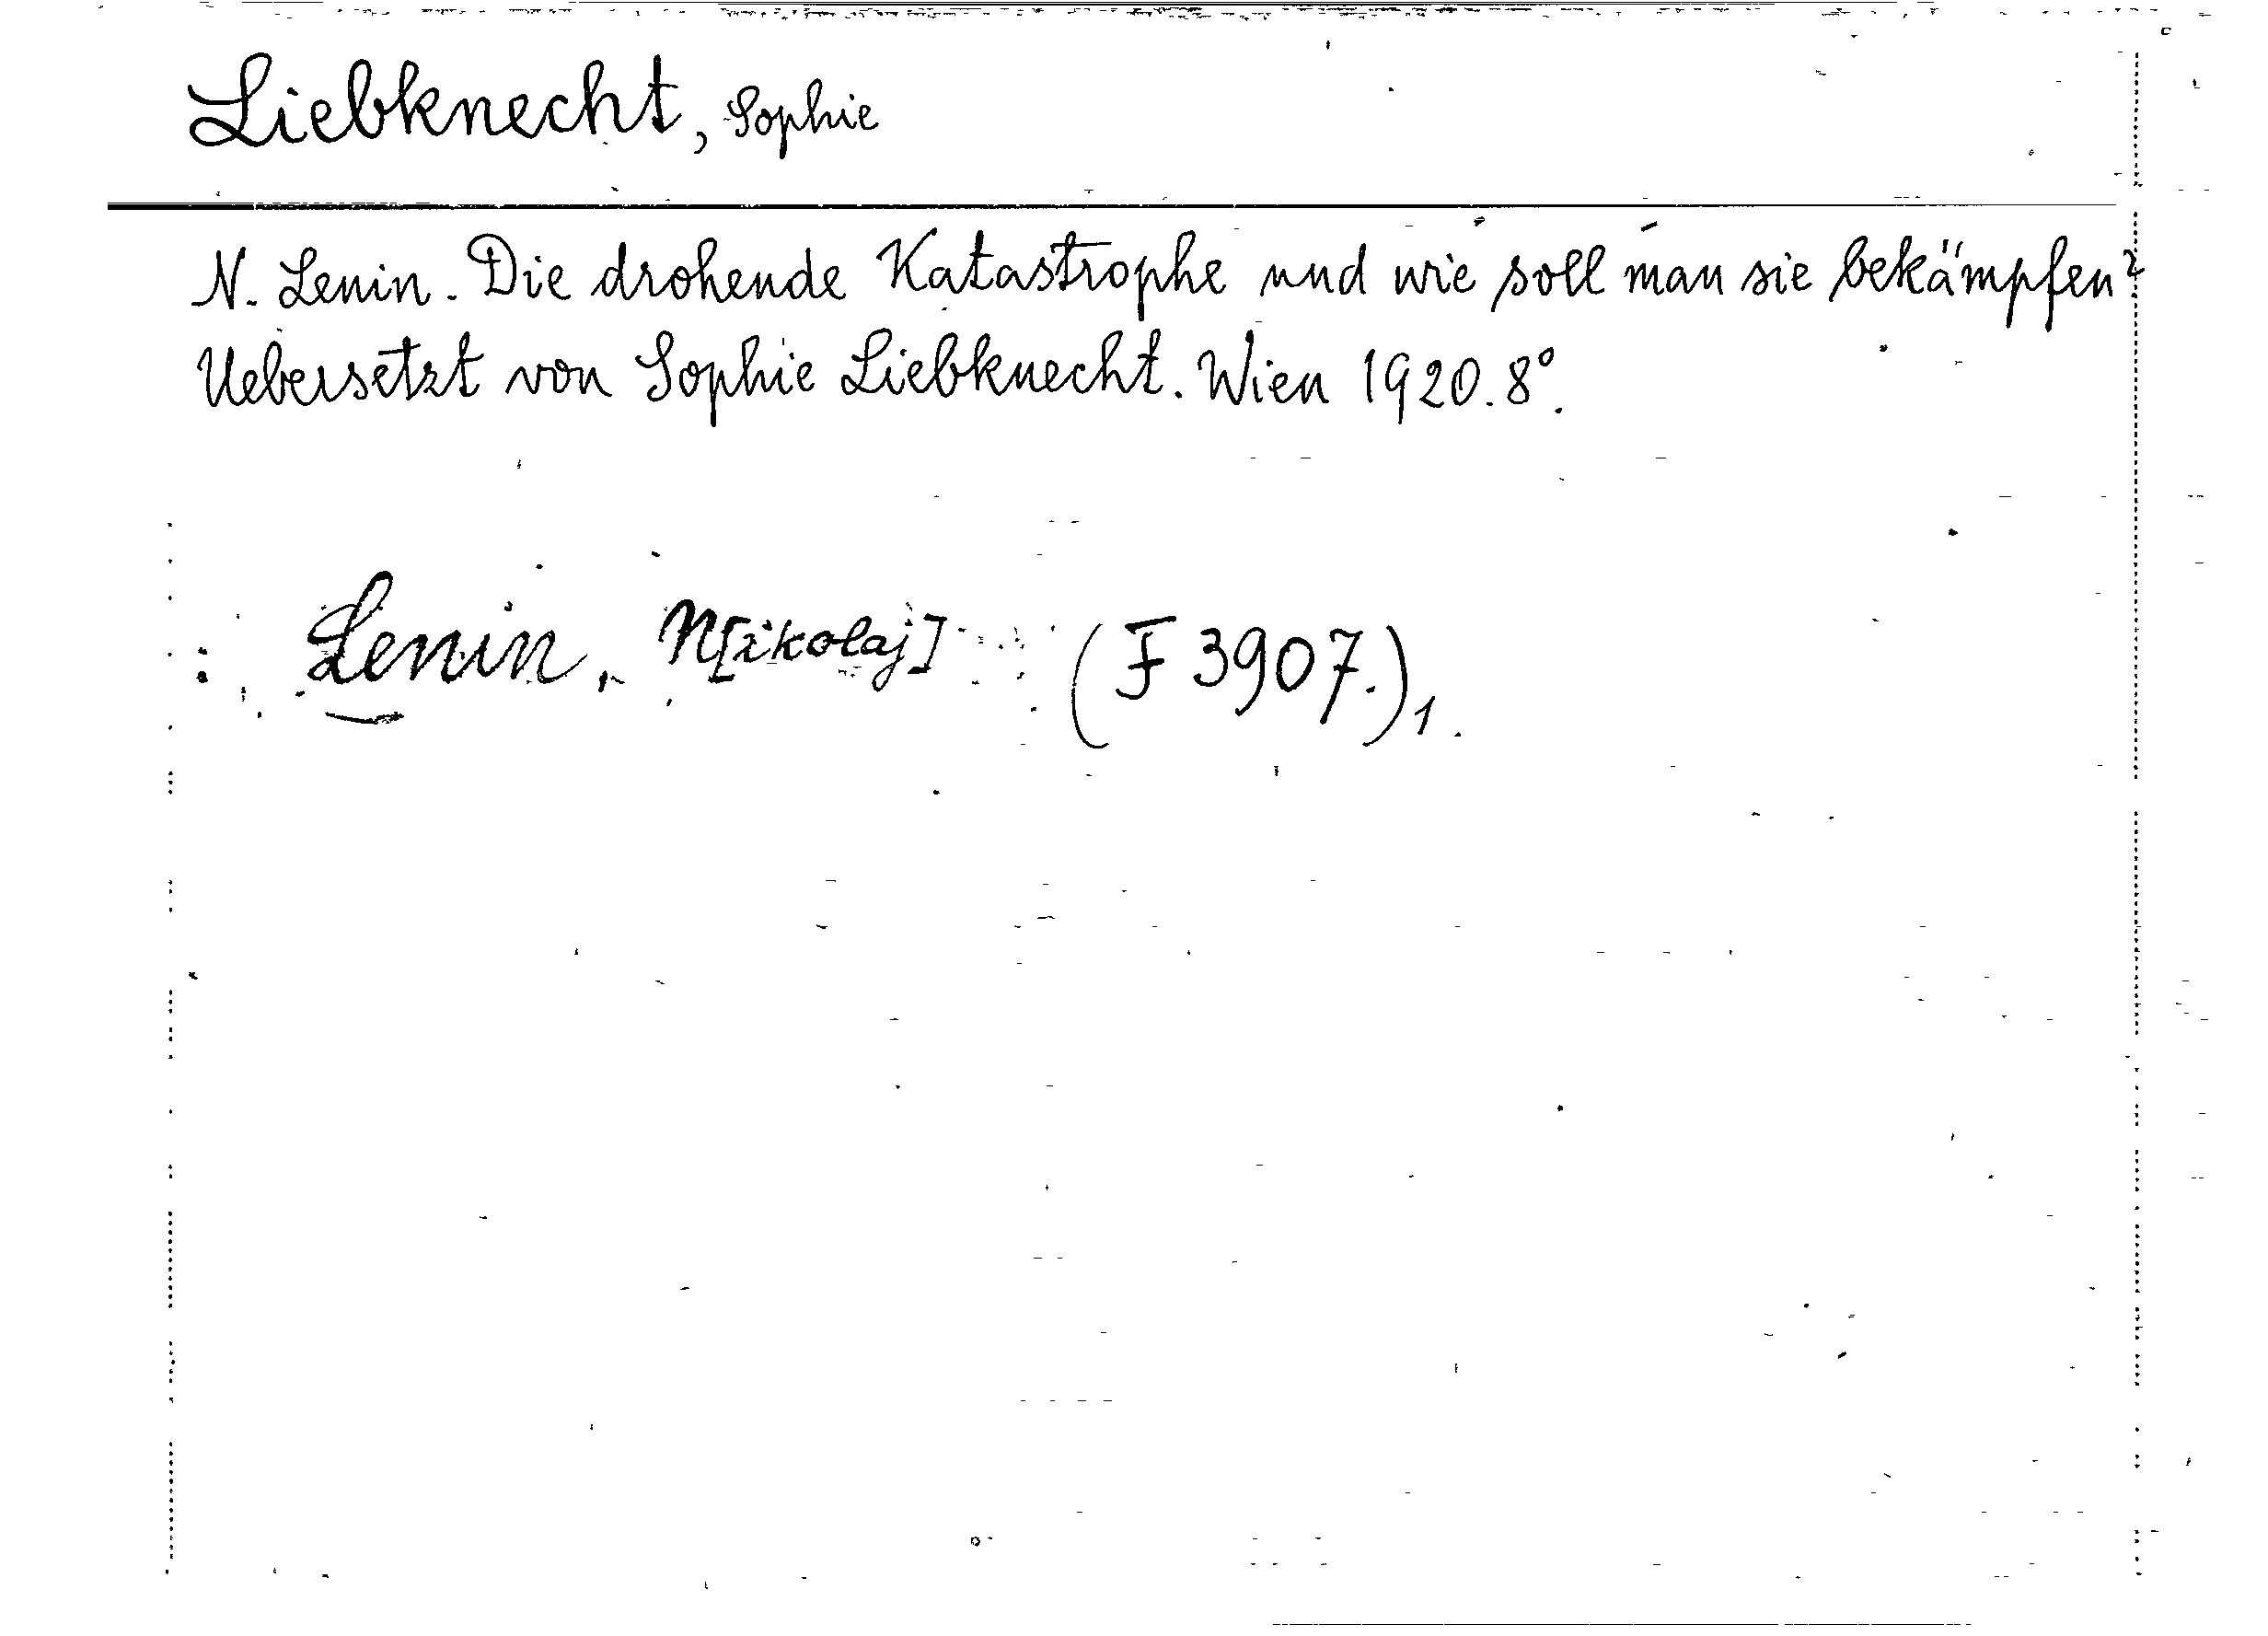 Liebknecht, Sophie
N. Lenin. Die drohende Katastrophe und wie soll man sie bekämpfen?
Uebersetzt von Sophie Liebknecht. Wien 1920. 8°.
Lenin, N[ikolaj] (F 3907.)1.